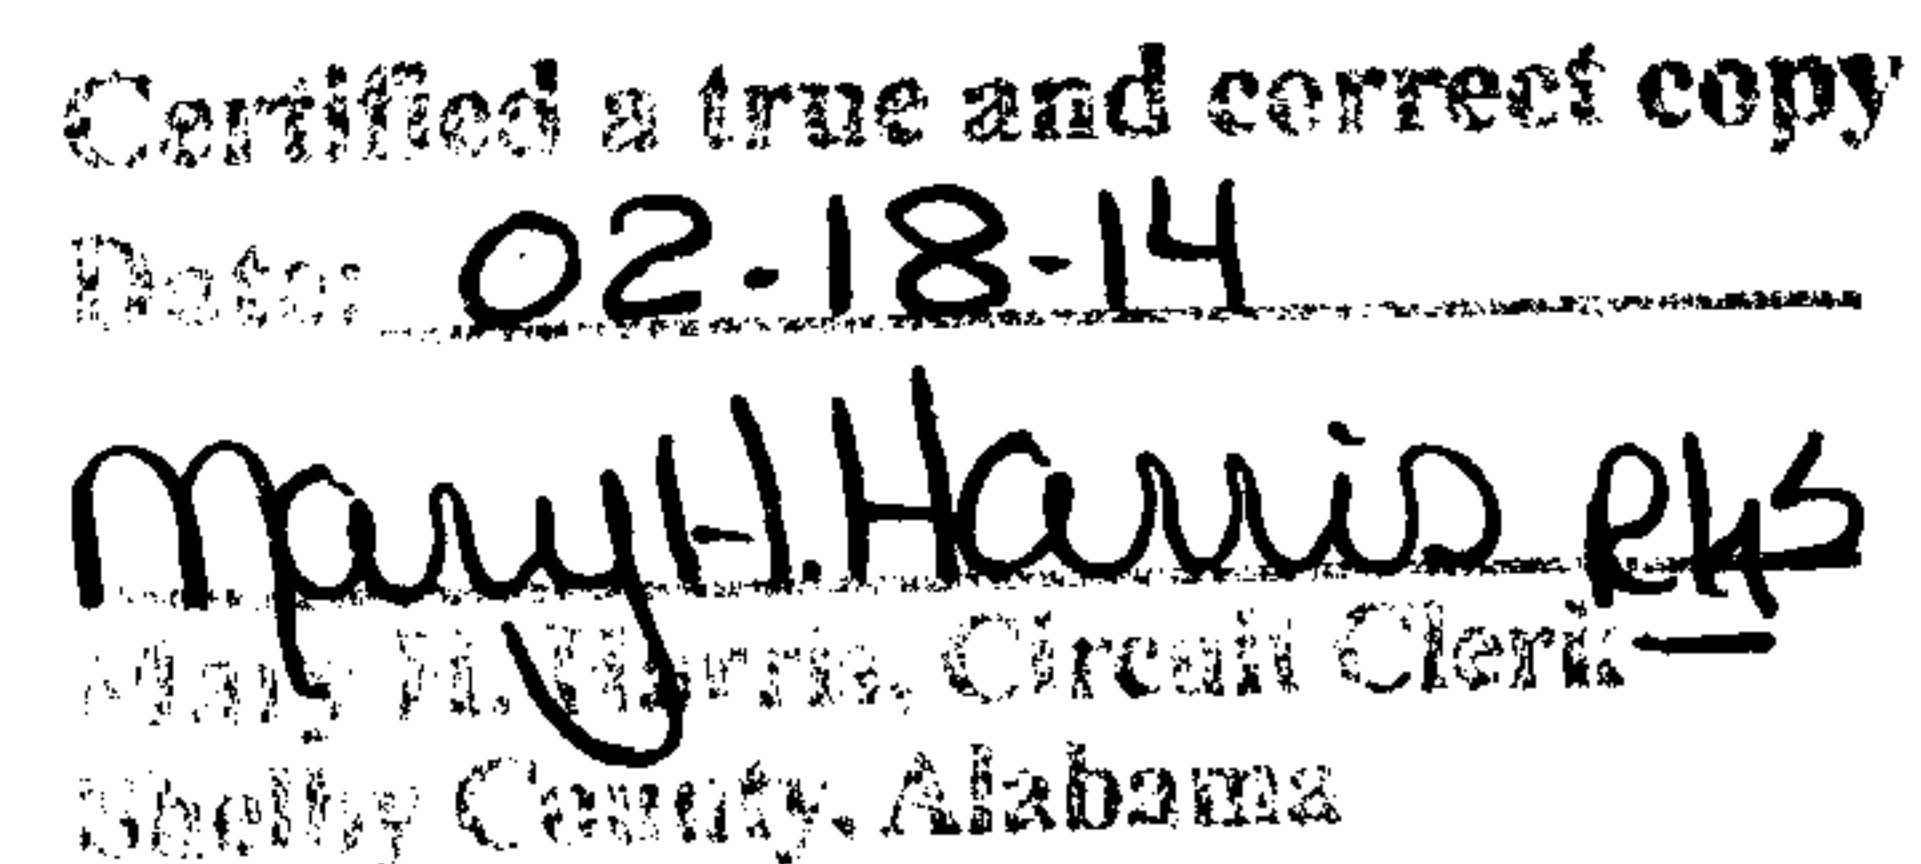 Certified a true and correct copy
Date: 02-18-14
Mary H. Harris
Mary H. Harris, Circuit Clerk
Shelby County, Alabama